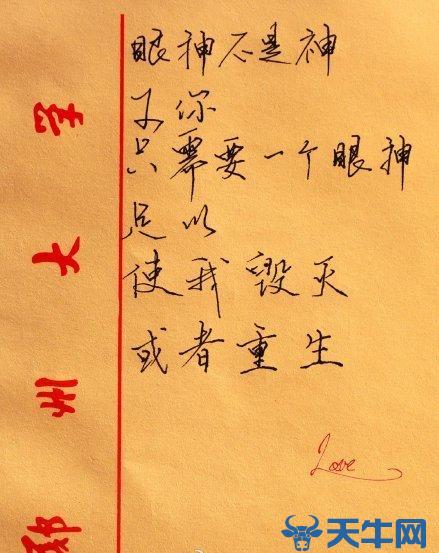 眼神不是神
你
只需要一个眼神
足以
使我毁灭
或者重生
Love
郑州大学
天牛网